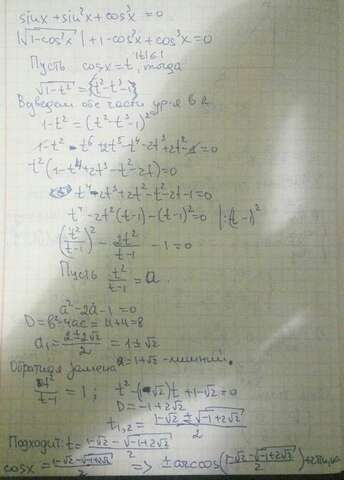 sinx + sin²x + cos³x = 0
|√(1-cos²x)| + 1 - cos²x + cos³x = 0
Пусть cosx = t, |t|≤1, тогда
√(1-t²) = {t²-t³-1}
Возведем обе части ур-я в 2.
1-t² = (t²-t³-1)²
t²(1-t⁴+2t³-t²-2t)=0
t⁴-2t³+2t²-t²-2t-1=0
t⁴-2t²(t-1)-(t-1)²=0 |:(t-1)²
(t²/(t-1))² - 2t²/(t-1) - 1 = 0
Пусть t²/(t-1) = a.
a²-2a-1=0
D=b²-4ac=4+4=8
a₁=(2±2√2)/2=1±√2
Обратная замена a=1+√2 - лишний.
t²/(t-1) = 1; t²-(1-√2)t+1-√2=0
D=-1+2√2
t₁,₂=(1-√2±√(-1+2√2))/2
Подходит: t=(1-√2-√(-1+2√2))/2
cosx=(1-√2-√(-1+2√2))/2 => ±arccos((1-√2-√(-1+2√2))/2)+2πn,